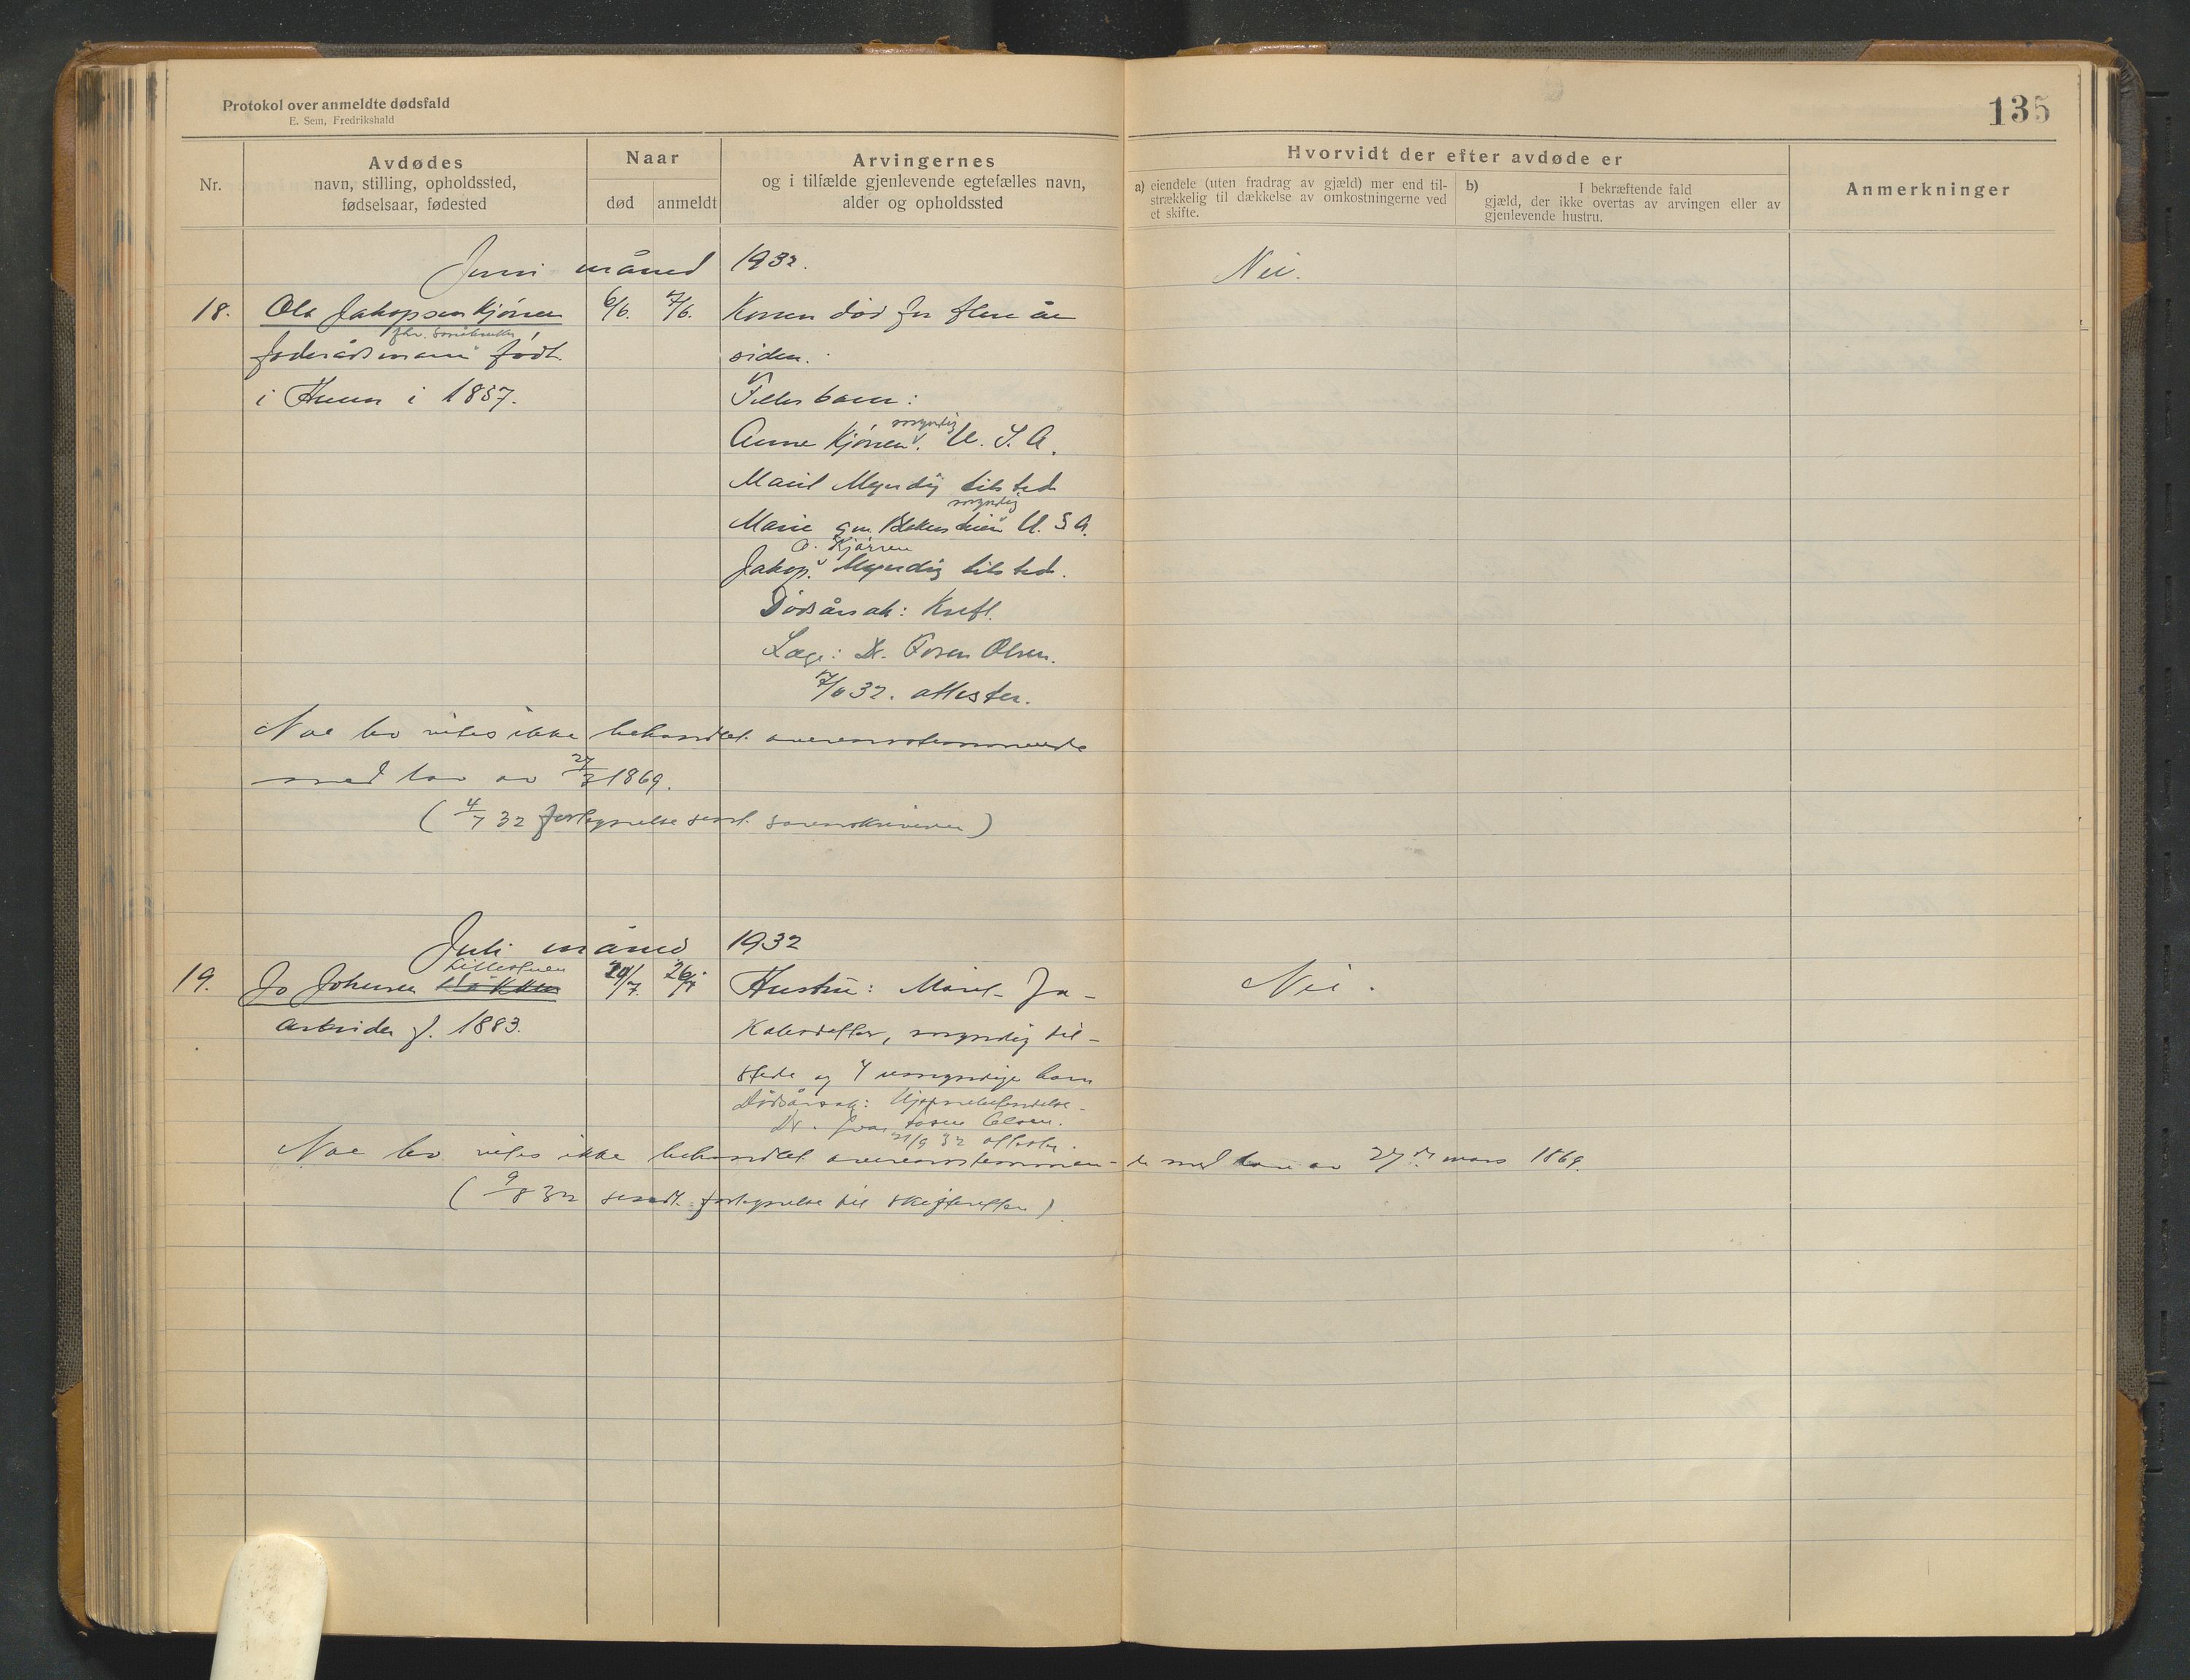 Protokol over anmeldte dødsfald
E. Sem, Fredrikshald
135
Nr.
Avdødes
navn, stilling, opholdssted,
fødselsaar, fødested
Naar
død
anmeldt
Arvingernes
og i tilfælde gjenlevende egtefælles navn,
alder og opholdssted
Hvorvidt der efter avdøde er
a) eiendele (uten fradrag av gjæld) mer end til-
strækkelig til dækkelse av omkostningerne ved
et skifte.
b) I bekræftende fald
gjæld, der ikke overtas av arvingen eller av
gjenlevende hustru.
Anmerkninger
Juni måned 1932.
Nei.
18. Ola Jakopsen Kjörren 6/6. 7/6. Konen död for flere år
fhv. Gårdbruker
foderådsmann födt
siden.
i Hurum i 1857.
Felles barn:
myndig
Anne Kjörren. U. S. A.
Marit Myndig tilsted
myndig
Marie gm. U. S A.
O. Kjörren
Jakop. Myndig tilsted.
Dödsårsak: Kreft.
Læge: Dr. Fosen Olsen.
17/6 32. attester.
Noe bo vites ikke behandlet overensstemmende
med lov av 27/3 1869.
(4/7 32 fortegnelse sendt sorenskriveren)
Juli måned 1932
Lillestuen
19. Jo Johnsen 20/7. 26/7 Hustru: Marit Ja-
Nei.
Arbeider f. 1883.
kobsdatter, myndig til-
stede og 4 umyndige barn
Dödsårsak: Hjernebetendelse
Dr. Ivar Fosen Olsen.
21/9 32 attester.
Noe bo vites ikke behandlet overensstemmen-de med lov av 27de mars 1869.
(9/8 32 sendt fortegnelse til skifteretten)